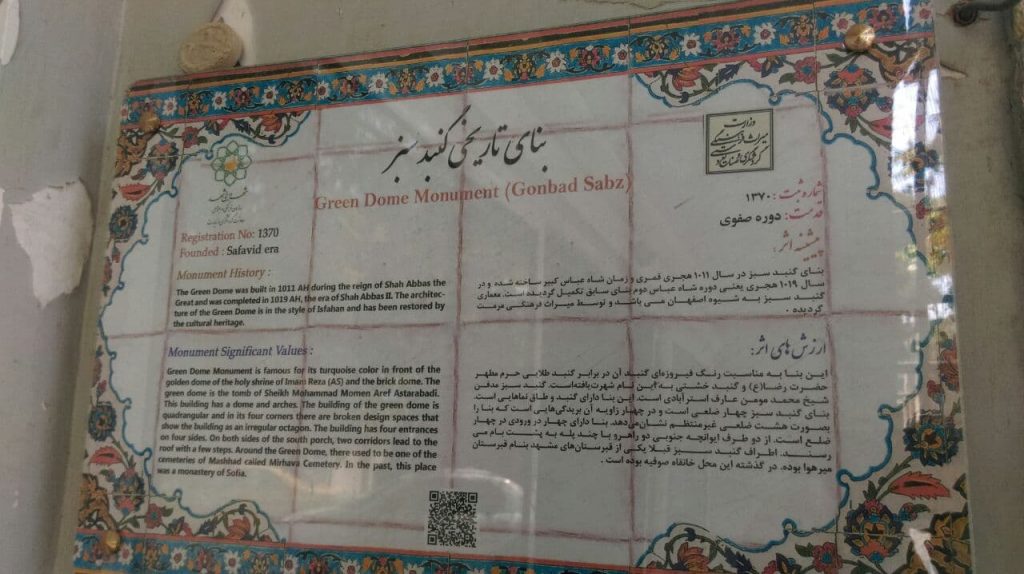 بنای تاریخی گنبد سبز
Green Dome Monument (Gonbad Sabz)
وزارت
میراث فرهنگی
گردشگری و صنایع دستی
شماره ثبت: ۱۳۷۰
قدمت: دوره صفوی
پیشینه اثر:
بنای گنبد سبز در سال ۱۰۱۱ هجری قمری و زمان شاه عباس کبیر ساخته شده و در
سال ۱۰۱۹ هجری یعنی دوره شاه عباس دوم بنای سابق تکمیل گردیده است. معماری
گنبد سبز به شیوه اصفهان می باشد و توسط میراث فرهنگی مرمت
گردیده .
ارزش های اثر:
این بنا به مناسبت رنگ فیروزه‌ای گنبد آن در برابر گنبد طلایی حرم مطهر
حضرت رضا(ع) و گنبد خشتی به این نام شهرت یافته‌است. گنبد سبز مدفن
شیخ محمد مومن عارف استرآبادی است. این بنا دارای گنبد و طاق نماهایی است.
بنای گنبد سبز چهار ضلعی است و در چهار زاویه آن بریدگی‌هایی است که بنا را
بصورت هشت ضلعی غیرمنتظم نشان‌می‌دهد. بنا دارای چهار در ورودی در چهار
ضلع است. از دو طرف ایوانچه جنوبی دو راهرو با چند پله به پشت بام می
رسند. اطراف گنبد سبز قبلا یکی از قبرستان‌های مشهد، بنام قبرستان
میرهوا بوده. در گذشته این محل خانقاه صوفیه بوده است .
Registration No: 1370
Founded : Safavid era
Monument History :
The Green Dome was built in 1011 AH during the reign of Shah Abbas the
Great and was completed in 1019 AH, the era of Shah Abbas II. The architec-
ture of the Green Dome is in the style of Isfahan and has been restored by
the cultural heritage.
Monument Significant Values :
Green Dome Monument is famous for its turquoise color in front of the
golden dome of the holy shrine of Imam Reza (AS) and the brick dome. The
green dome is the tomb of Sheikh Mohammad Momen Aref Astarabadi.
This building has a dome and arches. The building of the green dome is
quadrangular and in its four corners there are broken design spaces that
show the building as an irregular octagon. The building has four entrances
on four sides. On both sides of the south porch, two corridors lead to the
roof with a few steps. Around the Green Dome, there used to be one of the
cemeteries of Mashhad called Mirhava Cemetery. In the past, this place
was a monastery of Sofia.